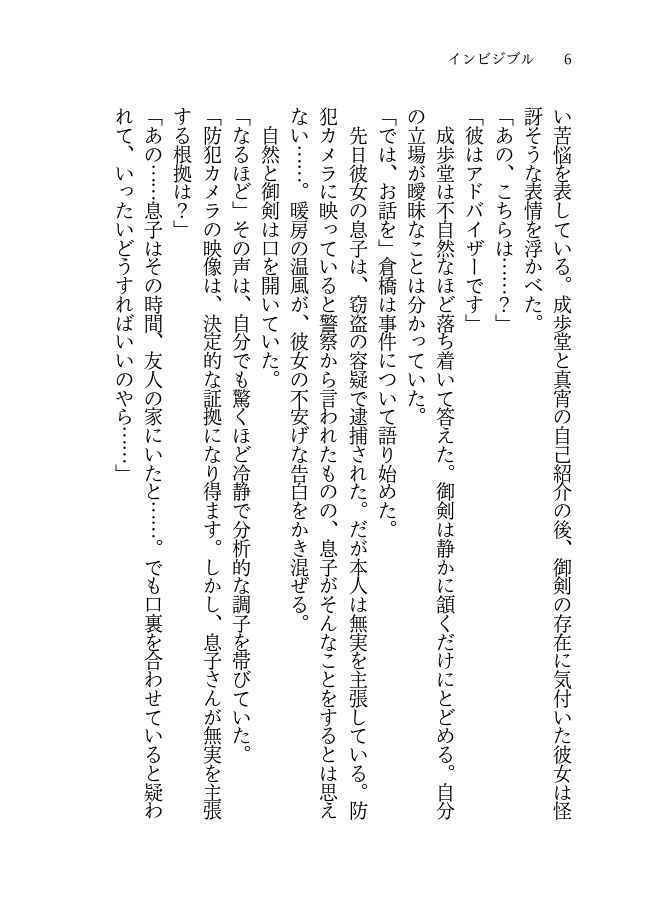 インビジブル 6
い苦悩を表している。成歩堂と真宵の自己紹介の後、御剣の存在に気付いた彼女は怪
訝そうな表情を浮かべた。
「あの、こちらは……？」
「彼はアドバイザーです」
　成歩堂は不自然なほど落ち着いて答えた。御剣は静かに頷くだけにとどめる。自分
の立場が曖昧なことは分かっていた。
「では、お話を」倉橋は事件について語り始めた。
　先日彼女の息子は、窃盗の容疑で逮捕された。だが本人は無実を主張している。防
犯カメラに映っていると警察から言われたものの、息子がそんなことをするとは思え
ない……。暖房の温風が、彼女の不安げな告白をかき混ぜる。
　自然と御剣は口を開いていた。
「なるほど」その声は、自分でも驚くほど冷静で分析的な調子を帯びていた。
「防犯カメラの映像は、決定的な証拠になり得ます。しかし、息子さんが無実を主張
する根拠は？」
「あの……息子はその時間、友人の家にいたと……。でも口裏を合わせていると疑わ
れて、いったいどうすればいいのやら……」